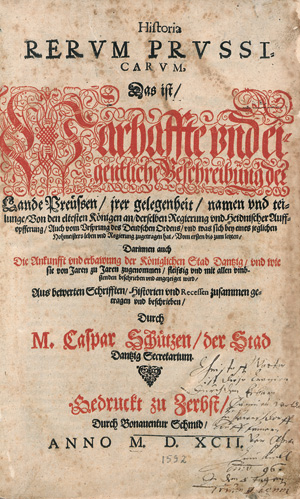 Historia
RERVM PRVSSI-
CARVM,
Das ist/
Warhaffte vnd ei-
gentliche Beschreibung der
Lande Preüssen/ jrer gelegenheit/ namen vnd tei-
lunge/ Von den eltesten Königen an/ derselben Regierung vnd Heidnischer Auff-
opfferung/ Auch vom Vrsprung des Deudschen Ordens/ vnd was sich bey eines jeglichen
Hohmeisters leben vnd Regierung zugetragen hat/ Vom ersten bis zum letzten/
Darinnen auch
Die Ankunfft vnd erbawung der Königlichen Stad Dantzig/ vnd wie
sie von Jaren zu Jaren zugenommen/ fleissig vnd mit allen vmb-
stenden beschrieben vnd angezeiget wird/
Aus bewerten Schrifften/ Historien vnd Recessen zusammen ge-
tragen vnd beschrieben/
Durch
M. Caspar Schützen/ der Stad
Dantzig Secretarium.
Gedruckt zu Zerbst/
Durch Bonauentur Schmid/
ANNO M. D. XCII.
1592